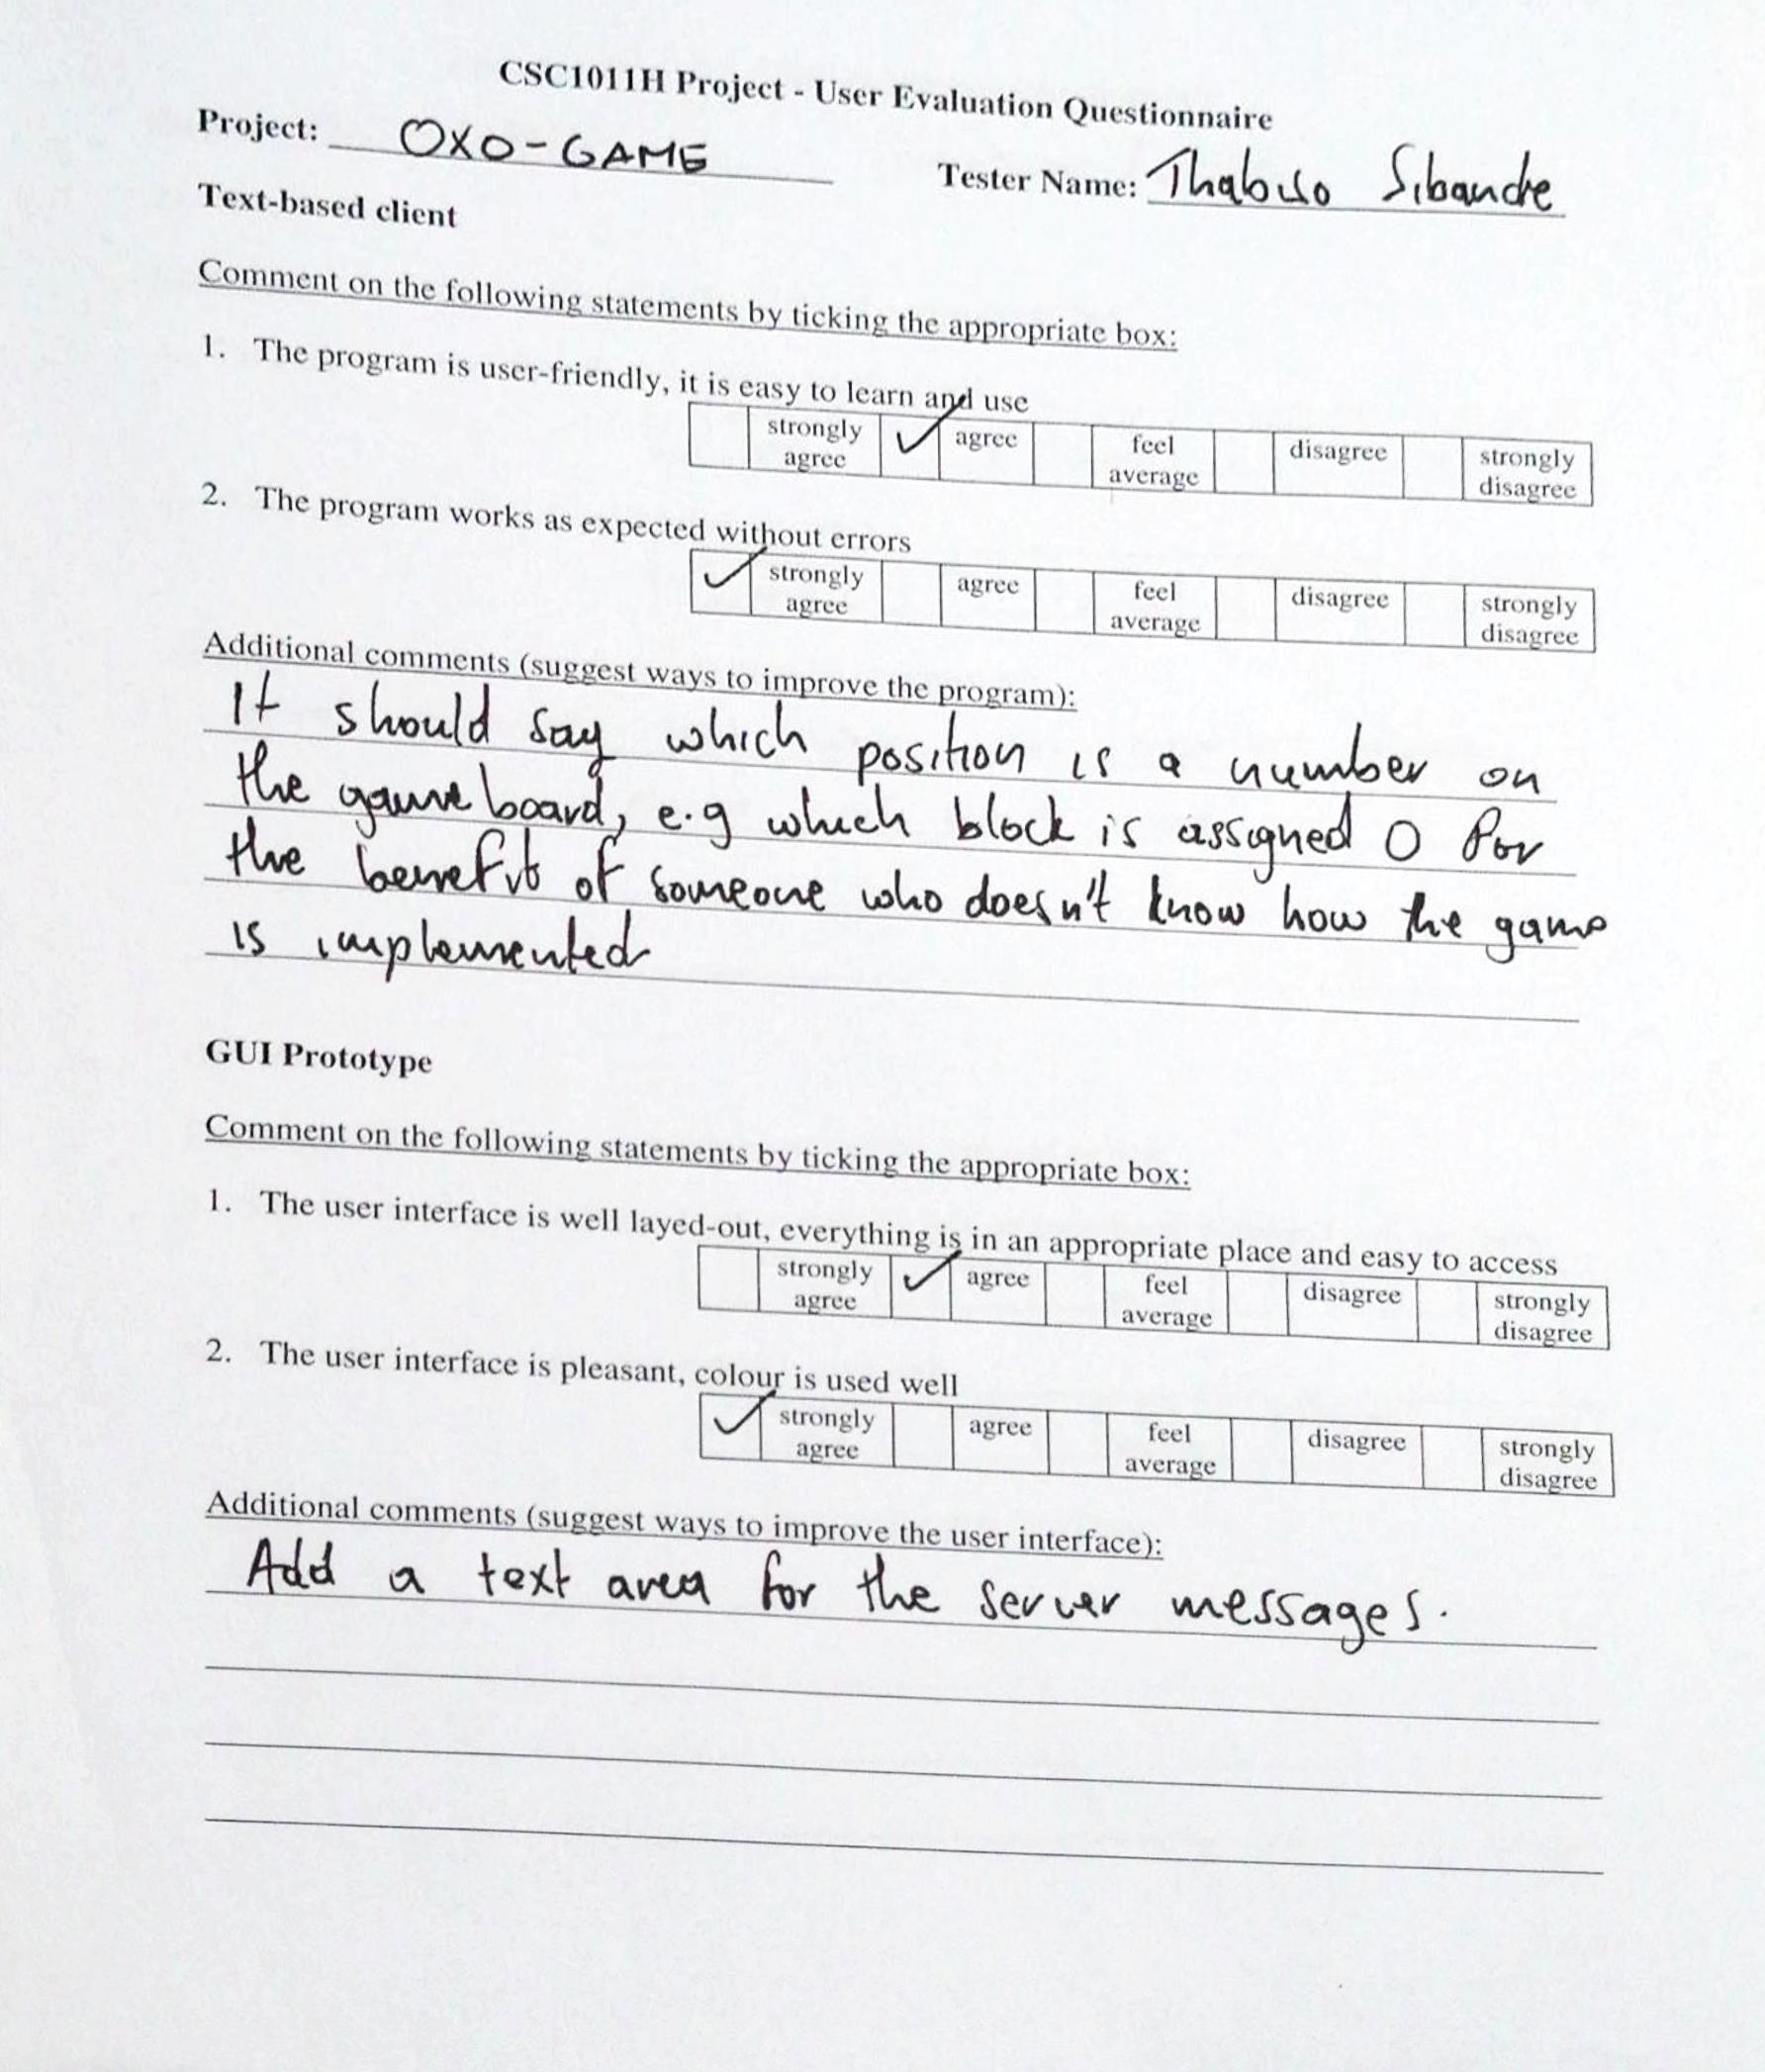 CSC1011H Project - User Evaluation Questionnaire
Project: OXO-GAME Tester Name: Thabiso Sibande
Text-based client
Comment on the following statements by ticking the appropriate box:
1. The program is user-friendly, it is easy to learn and use
strongly agree ✓ agree feel average disagree strongly disagree
2. The program works as expected without errors
✓ strongly agree agree feel average disagree strongly disagree
Additional comments (suggest ways to improve the program):
It should say which position is a number on
the game board, e.g which block is assigned 0 for
the benefit of someone who doesn't know how the game
is implemented
GUI Prototype
Comment on the following statements by ticking the appropriate box:
1. The user interface is well layed-out, everything is in an appropriate place and easy to access
strongly agree ✓ agree feel average disagree strongly disagree
2. The user interface is pleasant, colour is used well
✓ strongly agree agree feel average disagree strongly disagree
Additional comments (suggest ways to improve the user interface):
Add a text area for the server messages.